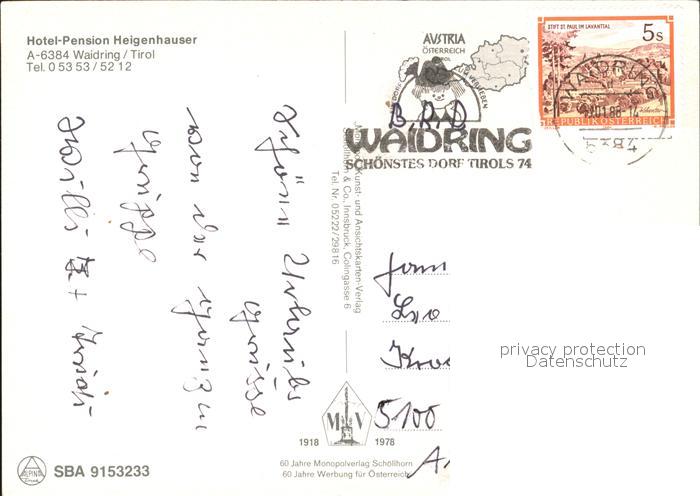 Hotel-Pension Heigenhauser
A-6384 Waidring / Tirol
Tel. 0 53 53 / 52 12
AVSTRIA
ÖSTERREICH
TIROL
WAIDRING
SCHÖNSTES DORF TIROLS 74
STIFT ST. PAUL IM LAVANTTAL
5s
REPUBLIK ÖSTERREICH
WAIDRING
B.R.D
Schöne Urlaubs
Grüsse
von der ganzen
Gruppe
Kunst- und Ansichtskarten-Verlag
Schöllhorn & Co., Innsbruck, Colingasse 6
Tel. Nr. 05222/29816
Leo
5100
privacy protection
Datenschutz
M V
1918 1978
60 Jahre Monopolverlag Schöllhorn
60 Jahre Werbung für Österreich
ALPINA
SBA 9153233